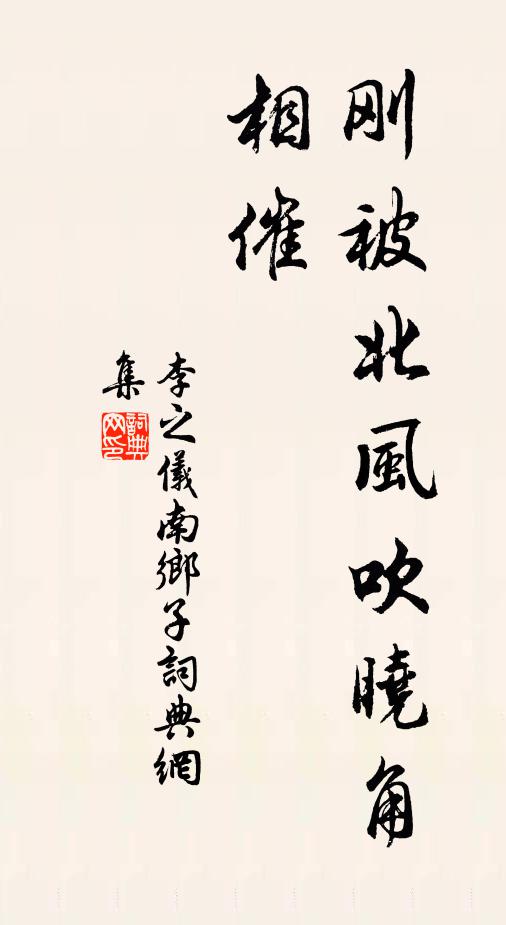 刚被北風吹曉角
相催
李之儀南鄉子詞典網
集
詞典
网印